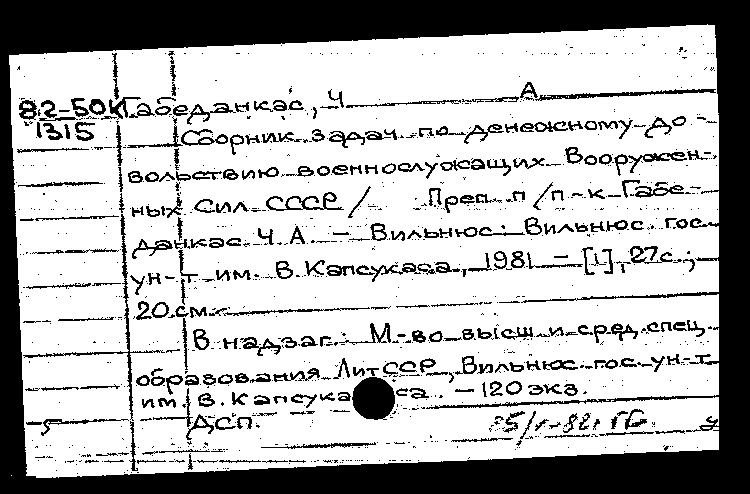 82-БОК Габеданкас, Ч А
1315 Сборник задач по денежному до-
вольствию военнослужащих Вооружен-
ных Сил СССР / Преп. п/п-к Габе-
данкас Ч. А. - Вильнюс: Вильнюс. гос.
ун-т им. В. Капсукаса, 1981 - [1], 27с.;
20 см.
В надзаг.: М-во высш и сред. спец.
образования ЛитССР, Вильнюс. гос. ун-т
им. В. Капсука са. - 120 экз.
5 ДСП.